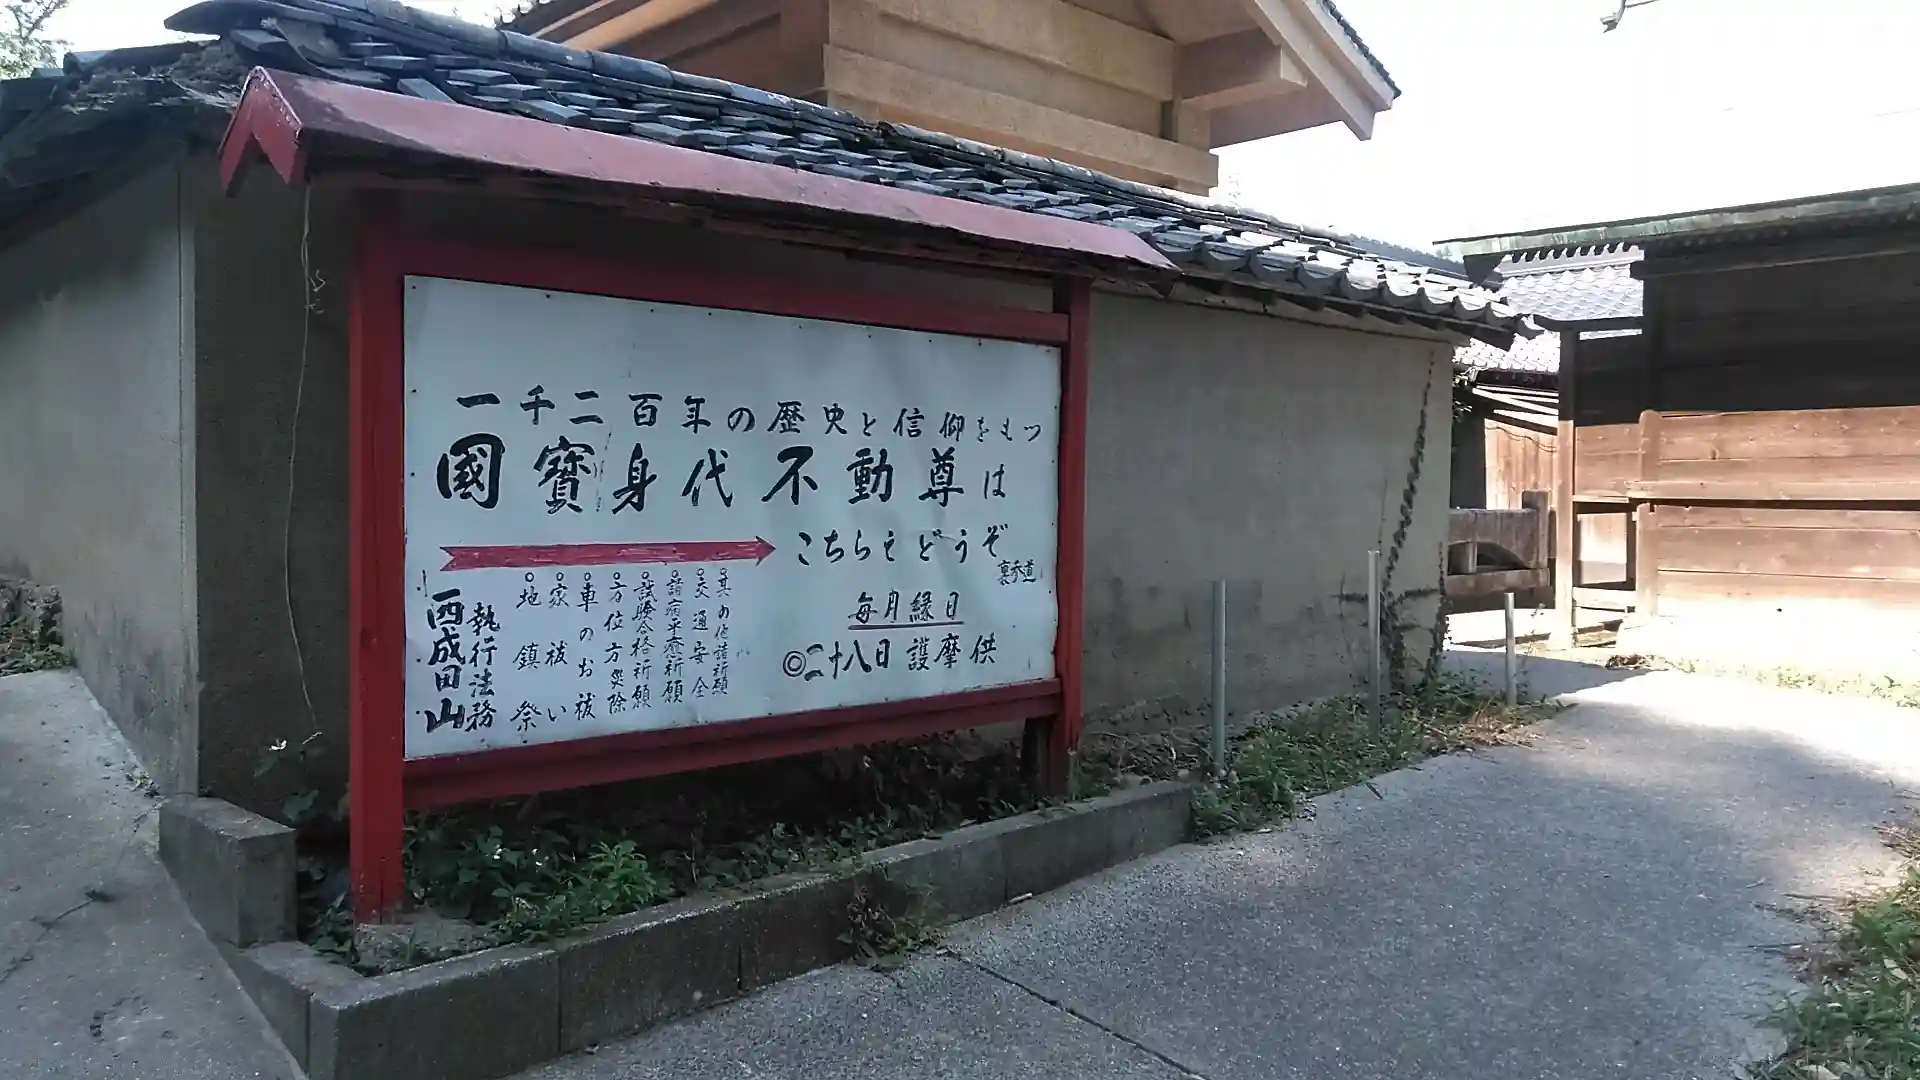 一千二百年の歴史と信仰をもつ
國寳身代不動尊は
こちらえどうぞ
裏参道
毎月縁日
◎二十八日 護摩供
○其の他諸祈願
○交通安全
○諸病平癒祈願
○試験合格祈願
○方位方災除
○車のお祓
○家祓い
○地鎮祭
執行法務
西成田山